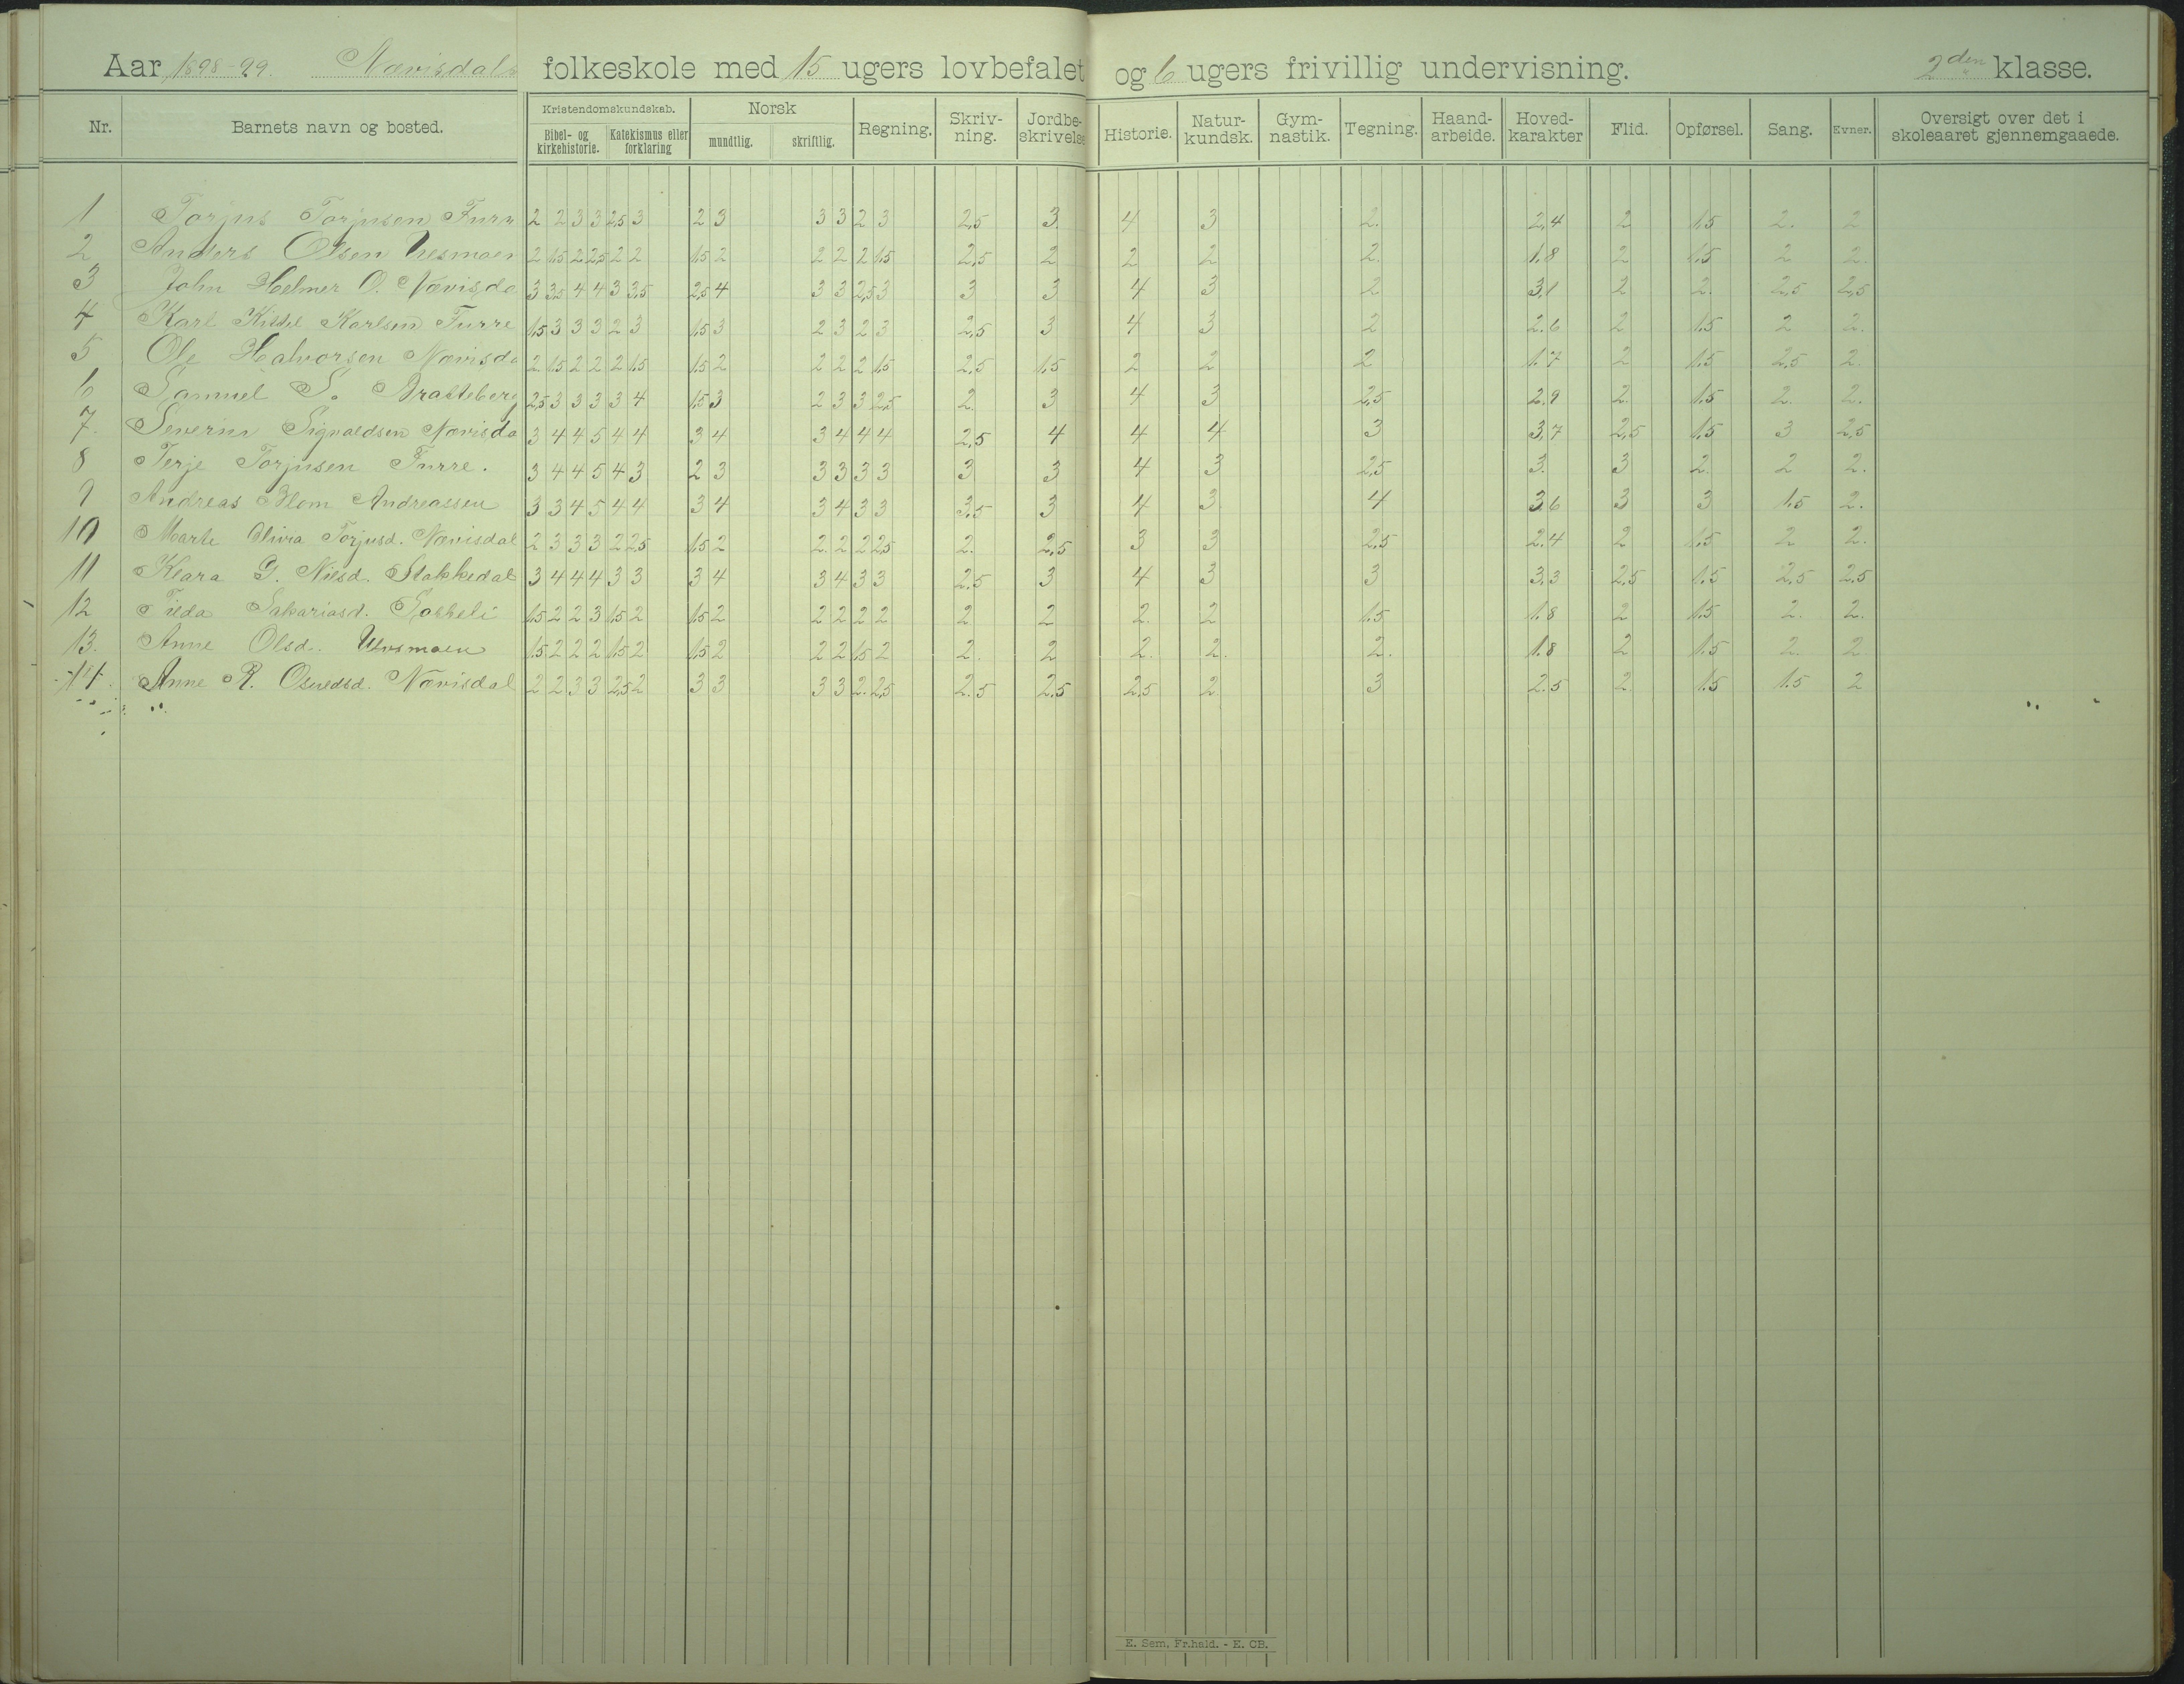 Aar 1898-99. Nævisdals folkeskole med 15 ugers lovbefalet og 6 ugers frivillig undervisning. 2den klasse.
Nr. Barnets navn og bosted. Kristendomskundskab. Norsk Regning. Skriv-ning. Jordbe-skrivelse Historie. Natur-kundsk. Gym-nastik. Tegning. Haand-arbeide. Hoved-karakter Flid. Opførsel. Sang. Evner. Oversigt over det i skoleaaret gjennemgaaede.
Bibel- og kirkehistorie. Katekismus eller forklaring mundtlig. skriftlig.
1 Torjus Torjusen Furr 2 2 3 3 2,5 3 2 3 3 3 2 3 2,5 3. 4 3 2. 2,4 2 1,5 2. 2
2 Anders Olsen 2 1,5 2 2,5 2 2 1,5 2 2 2 2 1,5 2,5 2 2 2 2. 1,8 2 1,5 2 2.
3 John Helmer O. Nævisda 3 3,5 4 4 3 3,5 2,5 4 3 3 2,5 3 3 3 4 3 2 3,1 2 2. 2,5 2,5
4 Karl Kittel Karlsen Furre 1,5 3 3 3 2 3 1,5 3 2 3 2 3 2,5 3 4 3 2 2.6 2 1,5 2 2.
5 Ole Halvorsen Nævisda 2. 1,5 2 2 2 1,5 1,5 2 2 2 2 1,5 2,5 1,5 2 2 2 1.7 2 1,5 2,5 2
6 Samuel S. Bratteberg 2,5 3 3 3 3 4 1,5 3 2 3 3 2,5 2. 3 4 3 2,5 2.9 2. 1,5 2. 2.
7. Severin Sigvaldsen Nævisda 3 4 4 5 4 4 3 4 3 4 4 4 2,5 4 4 4 3 3,7 2,5 1,5 3 2,5
8 Terje Torjusen Furre. 3 4 4 5 4 3 2 3 3 3 3 3 3 3 4 3 2,5 3. 3 2. 2 2.
9 Andreas Blom Andreassen 3 3 4 5 4 4 3 4 3 4 3 3 3,5 3 4 3 4 3,6 3 3 1,5 2.
10 Marte Olivia Torjusd. Nævisdal 2 3 3 3 2 2,5 1,5 2 2. 2 2 2,5 2. 2,5 3 3 2,5 2.4 2 1,5 2 2.
11 Klara G. Nilsd. Stakkedal 3 4 4 4 3 3 3 4 3 4 3 3 2,5 3 4 3 3 3,3 2,5 1.5 2,5 2,5
12 Tilda Sakariasd. 1,5 2 2 3 1,5 2 1,5 2 2 2 2 2 2 2 2. 2 1,5 1.8 2 1,5 2. 2.
13. Anne Olsd. 1,5 2 2 2 1,5 2 1,5 2 2 2 1,5 2 2. 2 2. 2. 2. 1.8 2 1,5 2. 2
14. Anne R. Osuldsd. Nævisdal 2 2 3 3 2,5 2 3 3 3 3 2. 2,5 2.5 2,5 2,5 2 3 2.5 2 1.5 1.5 2
E. Sem, Fr.hald. - E. CB.